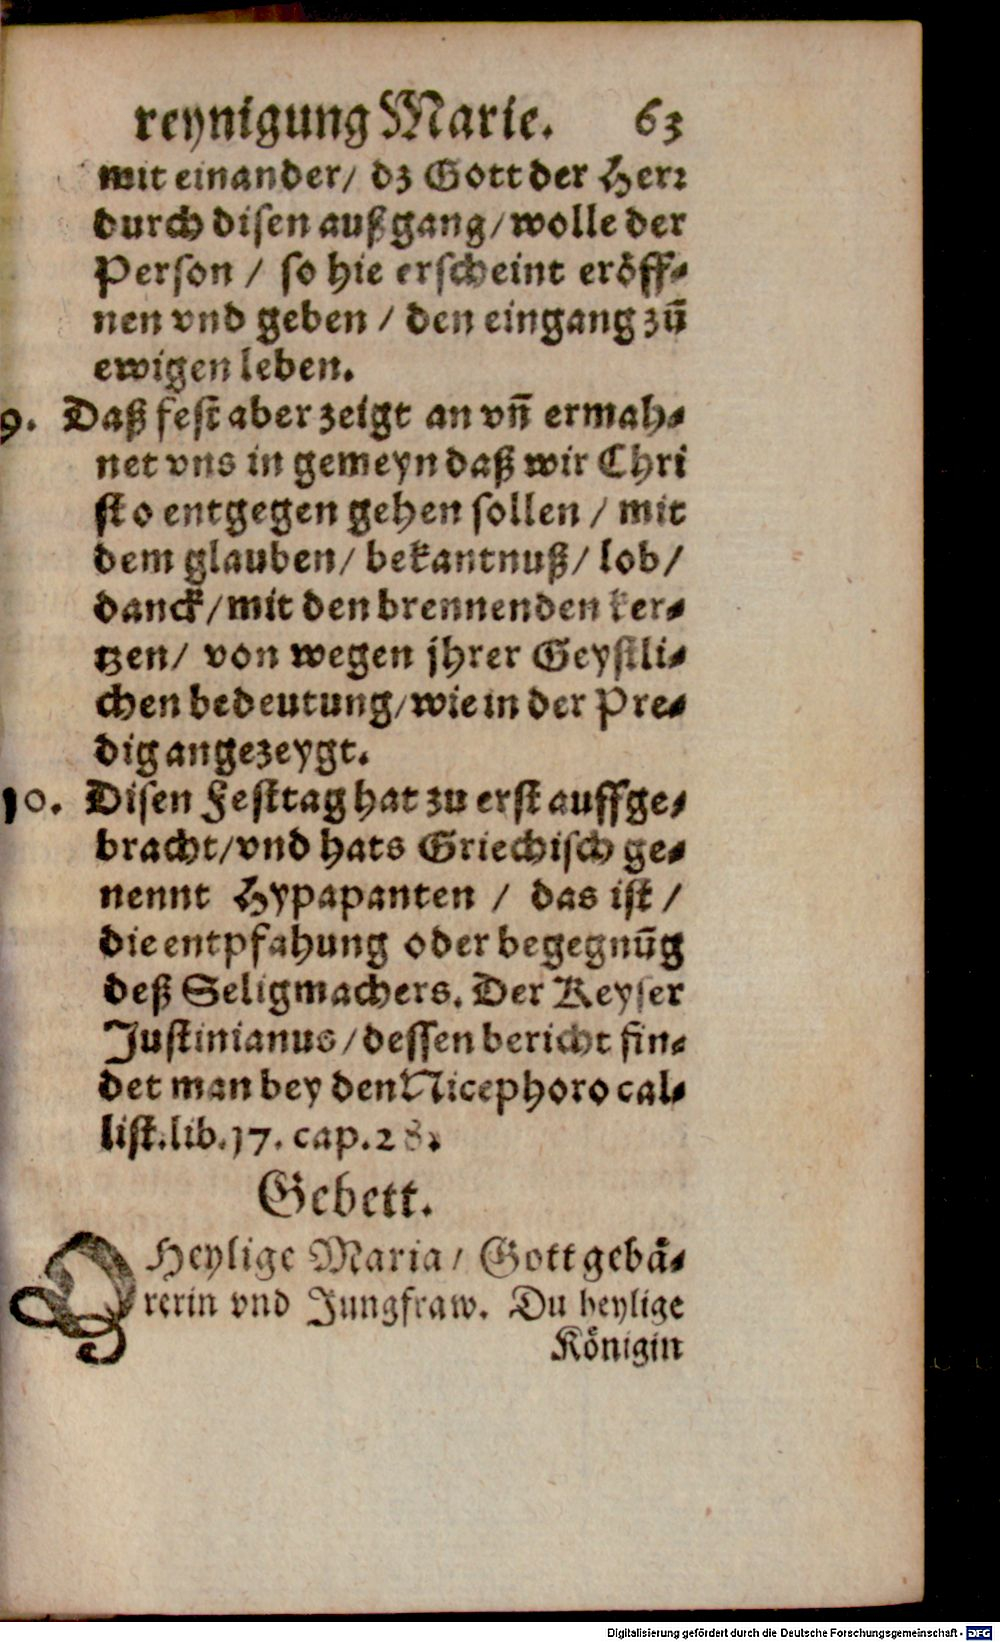 reynigung Marie. 63
mit einander/ dz Gott der Herr
durch disen außgang/ wolle der
Person / so hie erscheint eröff-
nen vnd geben / den eingang zū
ewigen leben.
9. Daß fest aber zeigt an vñ ermah-
net vns in gemeyn daß wir Chri
sto entgegen gehen sollen / mit
dem glauben/ bekantnuß/ lob/
danck/ mit den brennenden ker-
tzen/ von wegen jhrer Geystli-
chen bedeutung/ wie in der Pre-
dig angezeygt.
10. Disen Festtag hat zu erst auffge-
bracht/ vnd hats Griechisch ge-
nennt Hypapanten / das ist /
die entpfahung oder begegnūg
deß Seligmachers. Der Keyser
Justinianus/ dessen bericht fin-
det man bey den Nicephoro cal-
list. lib. 17. cap. 28.
Gebett.
O Heylige Maria/ Gott gebå-
rerin vnd Jungfraw. Du heylige
Kônigin
Digitalisierung gefördert durch die Deutsche Forschungsgemeinschaft - DFG